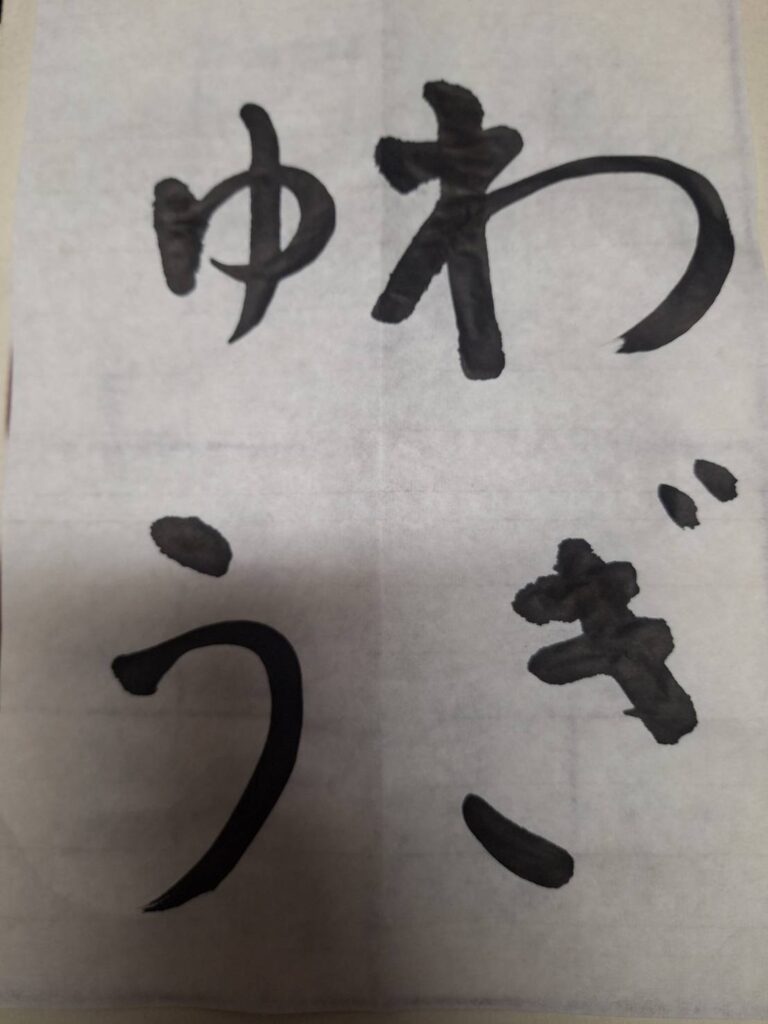 わぎ
ゆう